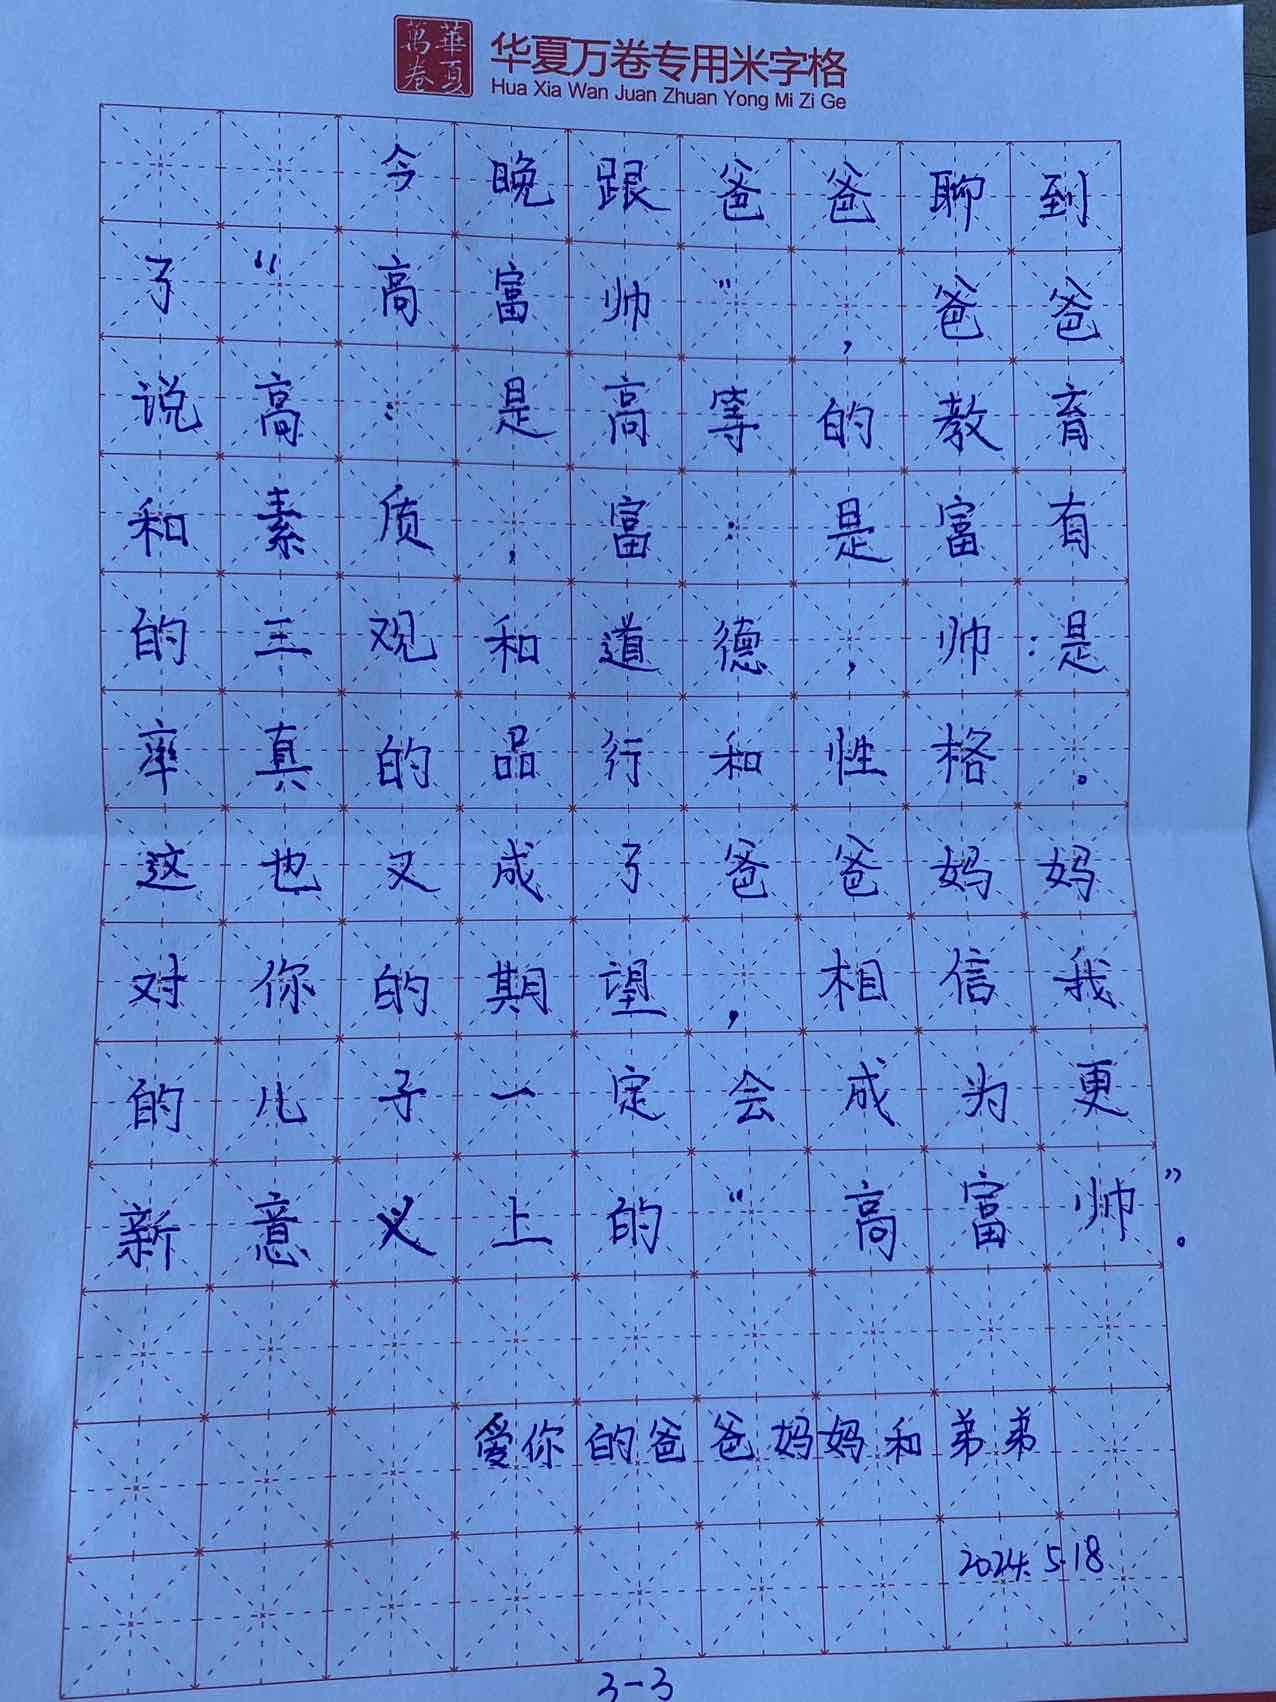 萬華
卷夏
华夏万卷专用米字格
Hua Xia Wan Juan Zhuan Yong Mi Zi Ge
今晚跟爸爸聊到
了“高富帅”，爸爸
说高：是高等的教育
和素质，富：是富有
的三观和道德，帅：是
率真的品行和性格。
这也又成了爸爸妈妈
对你的期望，相信我
的儿子一定会成为更
新意义上的“高富帅”。
爱你的爸爸妈妈和弟弟
2024.5.18
3-3